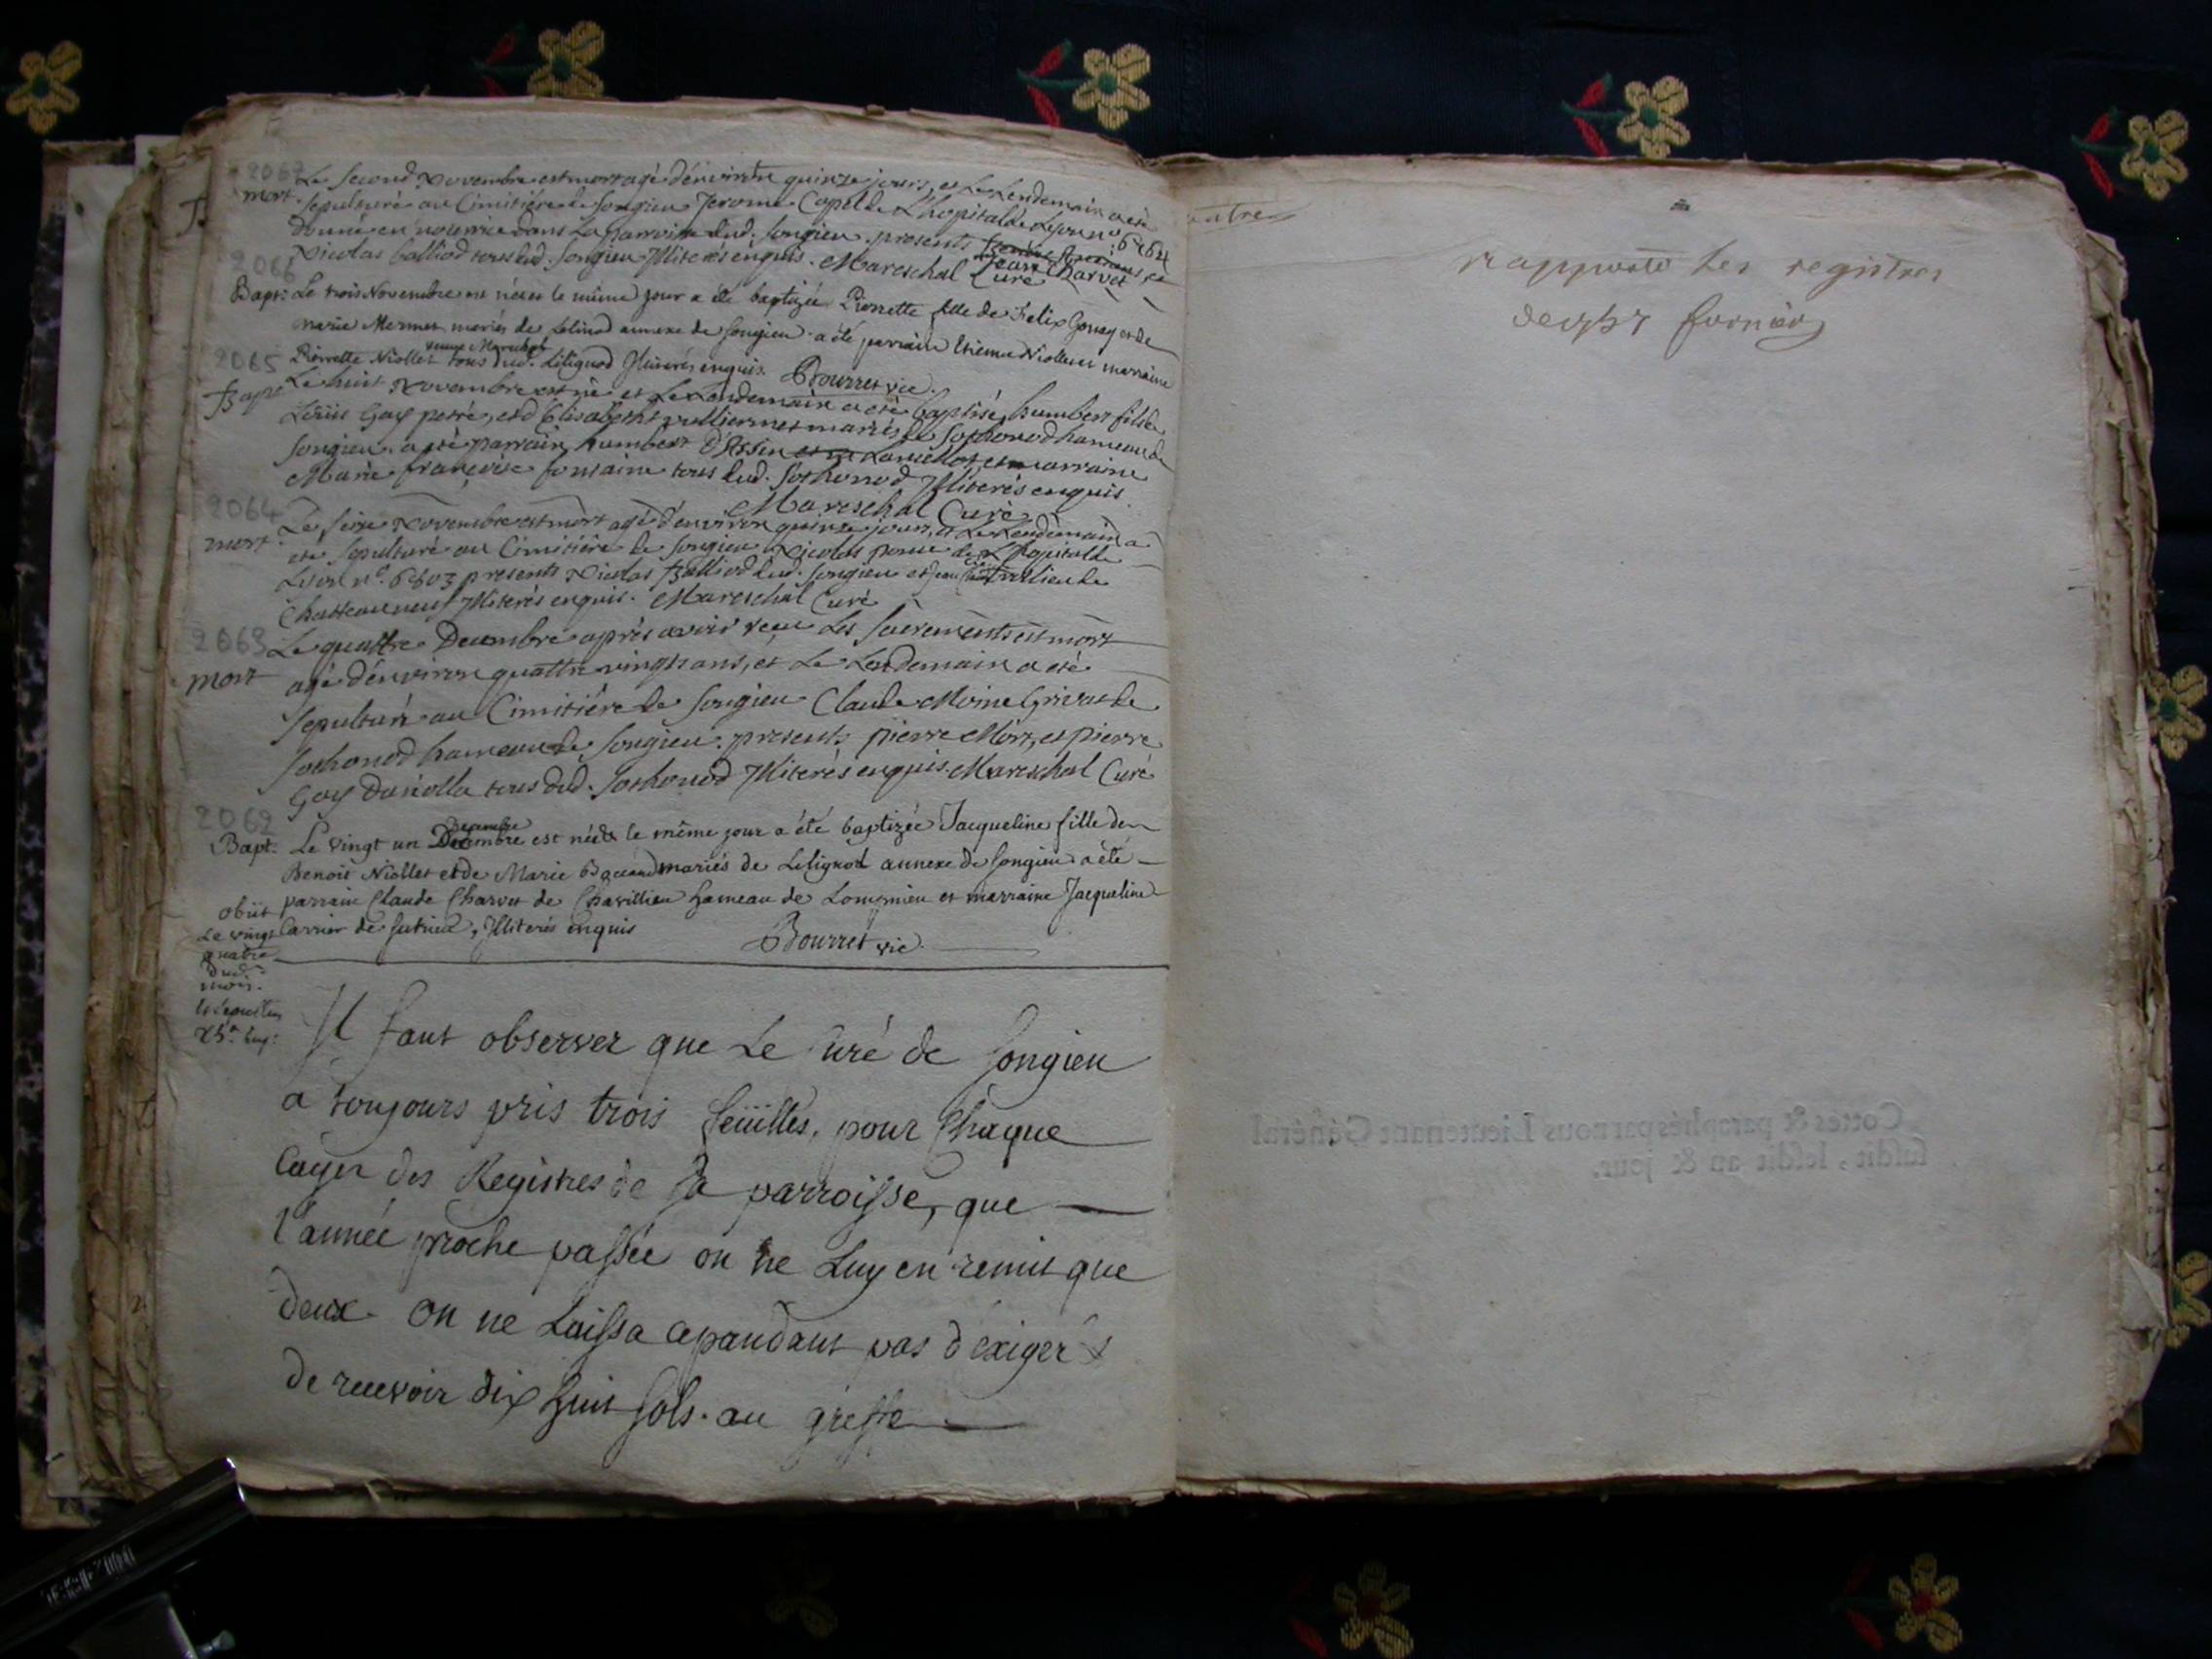 2067
mort. Le second Novembre est mort agé d'environ quinze jours, et Le Lendemain a eté
sepulturé au Cimitiére de Songieu Jerome Capel de L'hopital de Lyon n°
donné en nourrice dans La parroisse dud. Songieu. presents
Jean Charvet et
Nicolas balliod tous dud. Songieu Illiterés enquis. Mareschal Curé
2066
Bapt: Le trois Novembre est née et le même jour a été baptizée Pierrette fille de Felix Gonay et de
marie Mermet mariés de Lilinod annexe de Songieu. a été parrain Etienne Niollet et marraine
veuve Mareschal
Pierrette Niollet tous dud. Lilignod Illiterés enquis. Bourret vic.
2065
Bapt Le huit Novembre est né et Le Lendemain a eté baptisé humbert fils de
Loüis Gay perré, et d'Elisabeth vulliermet mariés de Sothonod hameau de
Songieu. a eté parrain humbert D'Assin et marraine
Marie françoise fontaine tous dud. Sothonod Illiterés enquis
Mareschal Curé
2064
mort Le seize Novembre est mort agé d'environ quinze jours, et Le Lendemain a
eté sepulturé au Cimitiére de Songieu Nicolas de L'hopital de
Lyon n°. 6803 presents Nicolas Balliod dud. Songieu et Jean de
Chatteauneuf Illiterés enquis. Mareschal Curé
2063
mort Le quattre Decembre aprés avoir reçu Les Sacrements est mort
agé d'environ quattre vingts ans, et Le Lendemain a eté
sepulturé au Cimitiére de Songieu Claude Moine Grivat de
Sothonod hameau de Songieu. presents pierre Mort, et pierre
Gay Daniolla tous dud. Sothonod Illiterés enquis. Mareschal Curé
2062
decembre
Bapt. Le vingt un Decembre est née & le même jour a été baptizée Jacqueline fille de
Benoit Niollet et de Marie mariés de Lilignod annexe de Songieu. a été
parrain Claude Charvet de Chavillieu hameau de Lompnieu et marraine Jacqueline
Carrier de Sutrieu, Illiterés enquis
Bourret vic.
obiit
Le vingt
quatre
dud.
mois.
Il faut observer que Le Curé de Songieu
a toujours pris trois feüilles, pour Chaque
Cayer des Registres de Sa parroisse, que
l'année proche passée on ne Luy en remit que
deux. On ne Laissa cepandant pas d'exiger &
de recevoir dix huit sols. au greffe
rapporté les registres
Cottés & paraphés par nous Lieutenant Général
susdit, lesdit an & jour.